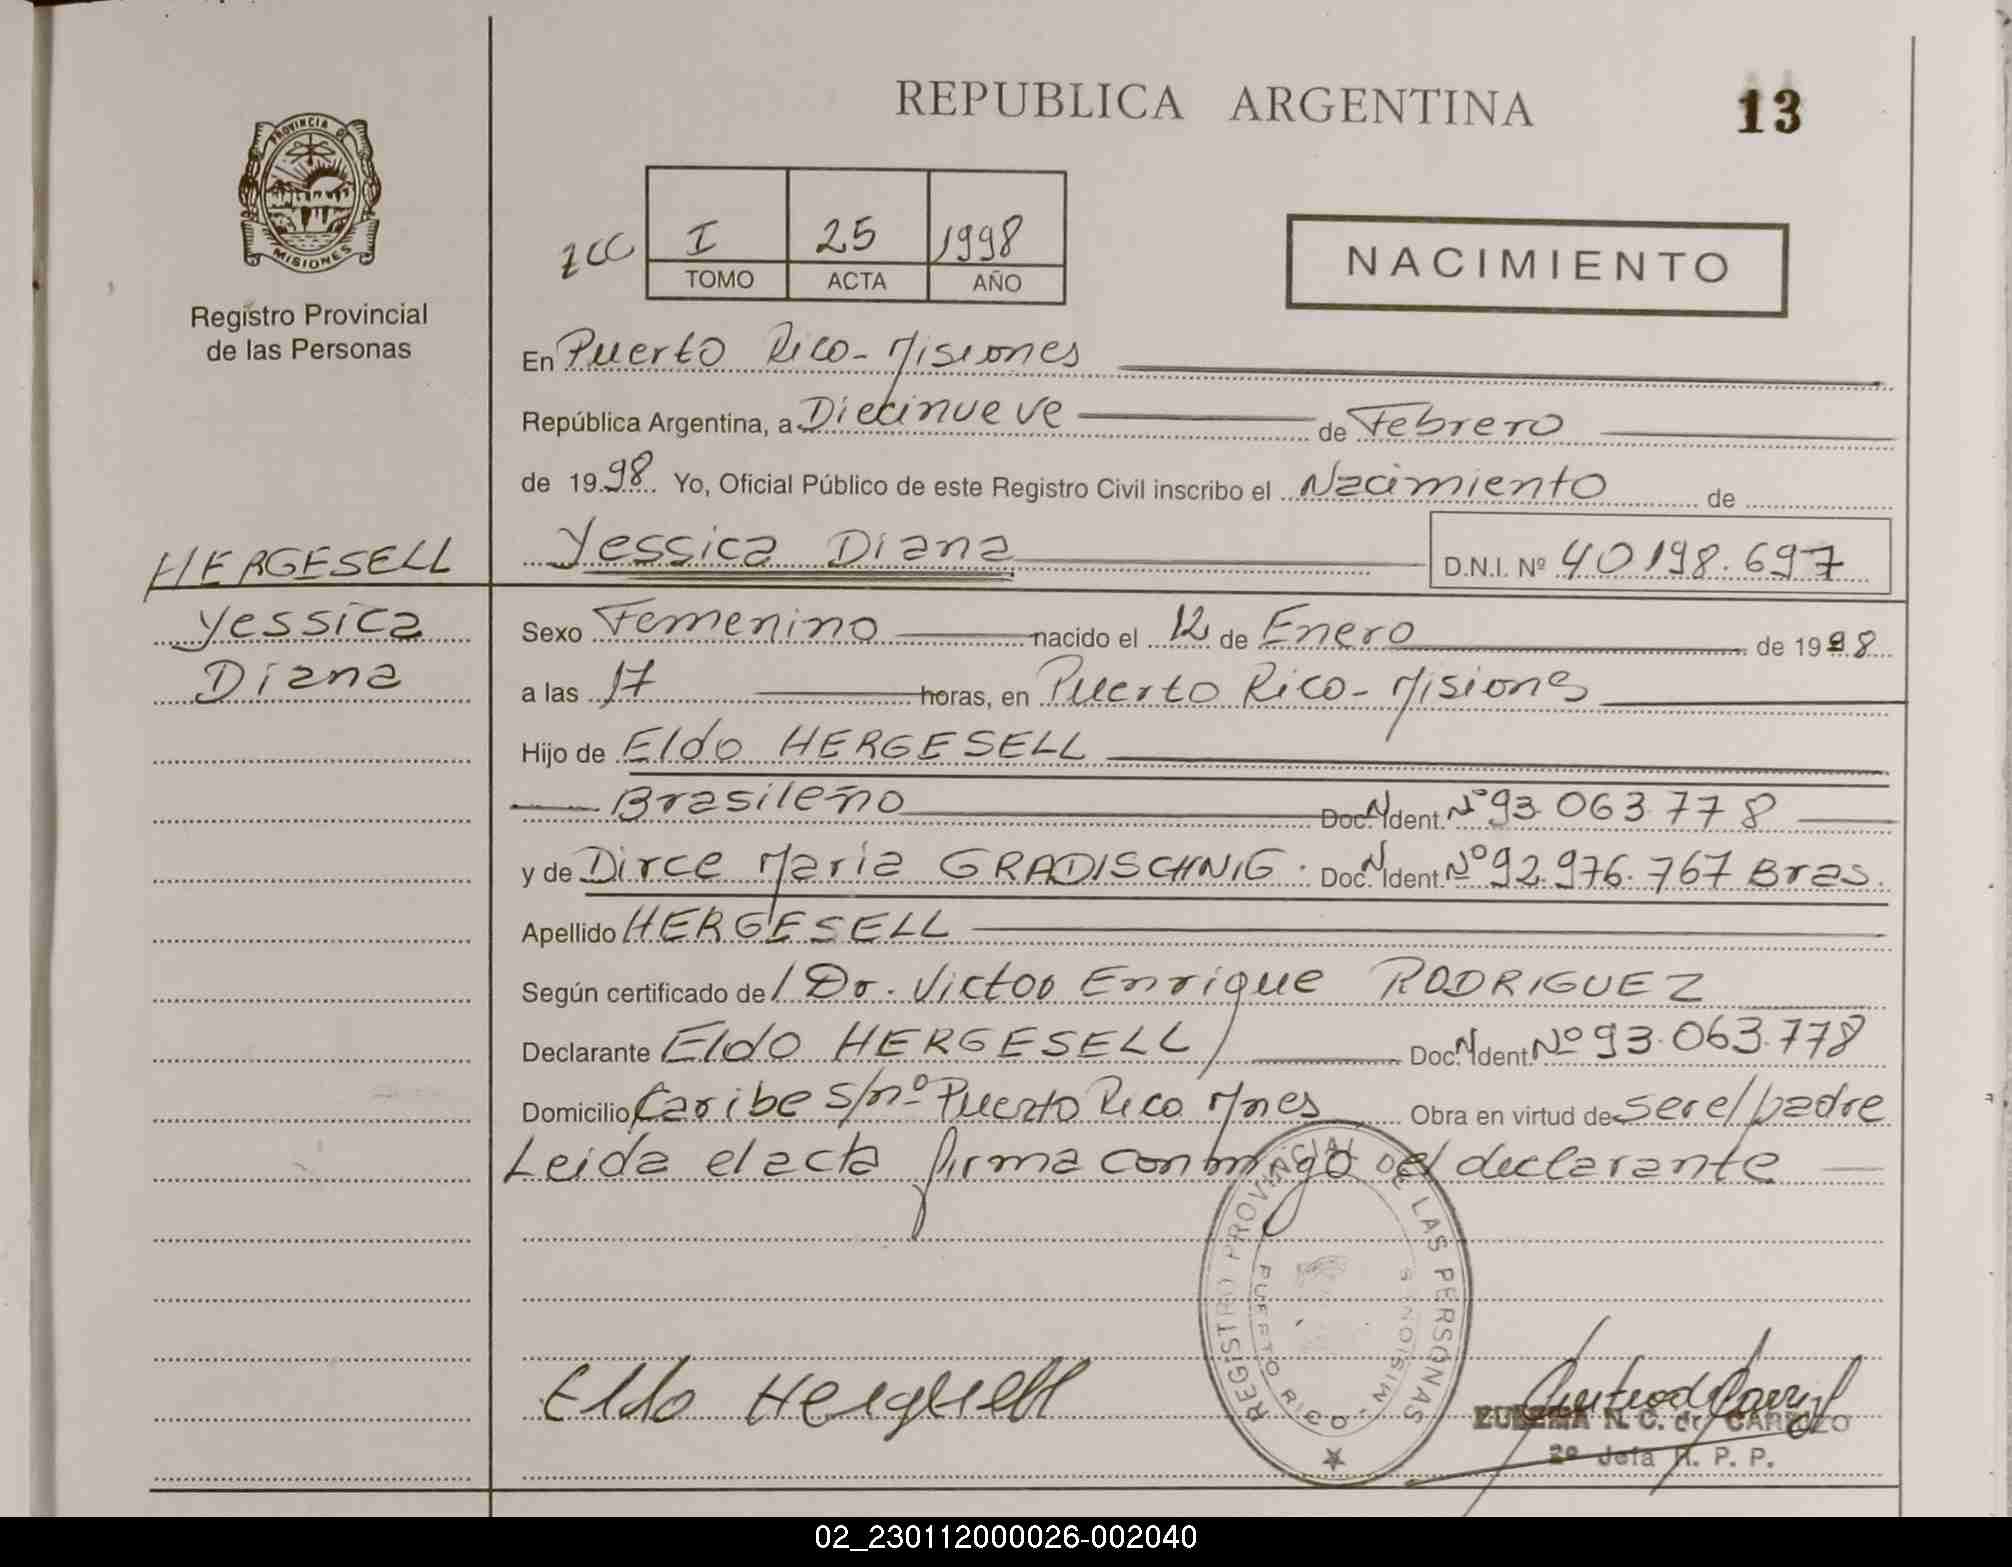 REPUBLICA ARGENTINA
13
PROVINCIA DE
MISIONES
Registro Provincial
de las Personas
I 25 1998
TOMO ACTA AÑO
NACIMIENTO
En Puerto Rico - Misiones
República Argentina, a Diecinueve de Febrero
de 1998 Yo, Oficial Público de este Registro Civil inscribo el Nacimiento de
HERGESELL
Yessica Diana D.N.I. Nº 40198.697
Yessica
Diana
Sexo Femenino nacido el 12 de Enero de 1998
a las 17 horas, en Puerto Rico - Misiones
Hijo de Eldo HERGESELL
Brasileño Doc. N Ident. Nº 93.063.778
y de Dirce Maria GRADISCHNIG. Doc. N Ident. Nº 92.976.767 Bras.
Apellido HERGESELL
Según certificado de / Dr. Victor Enrique RODRIGUEZ
Declarante Eldo HERGESELL / Doc. N Ident. Nº 93.063.778
Domicilio Caribe s/nº Puerto Rico Mnes Obra en virtud de ser el padre
Leida el acta firma conmigo el declarante
REGISTRO PROVINCIAL DE LAS PERSONAS
PUERTO RICO - MISIONES
Eldo Hergesell
N. C. de CARRIZO
2º Jefa R. P. P.
02_230112000026-002040